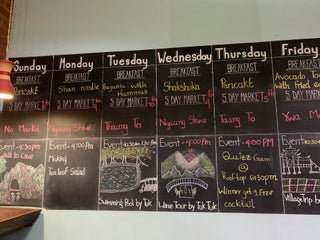 Sunday
BREAKFAST
Pancake
5 DAY MARKET
No Market
Event - 4:30pm
Walk to Cave
Monday
BREAKFAST
Shan noodle
5 DAY MARKET
Nyaung Shwe
Event - 4:00PM
Making
Tea leaf Salad
Tuesday
BREAKFAST
Baguette with
Hummus
5 DAY MARKET
Thaung To
Event
Swimming Pool by Tuk
Wednesday
BREAKFAST
Shakshuka
5 DAY MARKET
Nyaung Shwe
Event - 04:00PM
Wine Tour by Tuk Tuk
Thursday
BREAKFAST
Pancake
5 DAY MARKET
Thaung To
Event
Quizz Game
@
Rooftop 6:30pm
Winner get 1 Free
cocktail
Friday
BREAKFAST
Avocado To
with Fried e
5 DAY MARK
Ywa Ma
Event
Village trip by